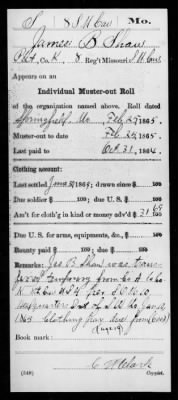 S | 8 S M Cav. | Mo.
James B Shaw
Pvt., Co. K, 8 Reg't Missouri S M Cav.
Appears on an
Individual Muster-out Roll
of the organization named above. Roll dated
Springfield, Mo Feb 27, 1865.
Muster-out to date Feb 24, 1865.
Last paid to Oct 31, 1864.
Clothing account:
Last settled 1865; drawn since $ 100
Due soldier $ 100; due U. S. $ 100
Am't for cloth'g in kind or money adv'd $ 31.69/100
Due U. S. for arms, equipments, &c., $ 100
Bounty paid $ 100; due $ 100
Remarks: Jas B. Shaw was trans
from Co to Co
K Per S.O. No 10
Head quarters Dist of S.W. Mo
1865 Clothing
Book mark:
C W Clark
(349) Copyist.